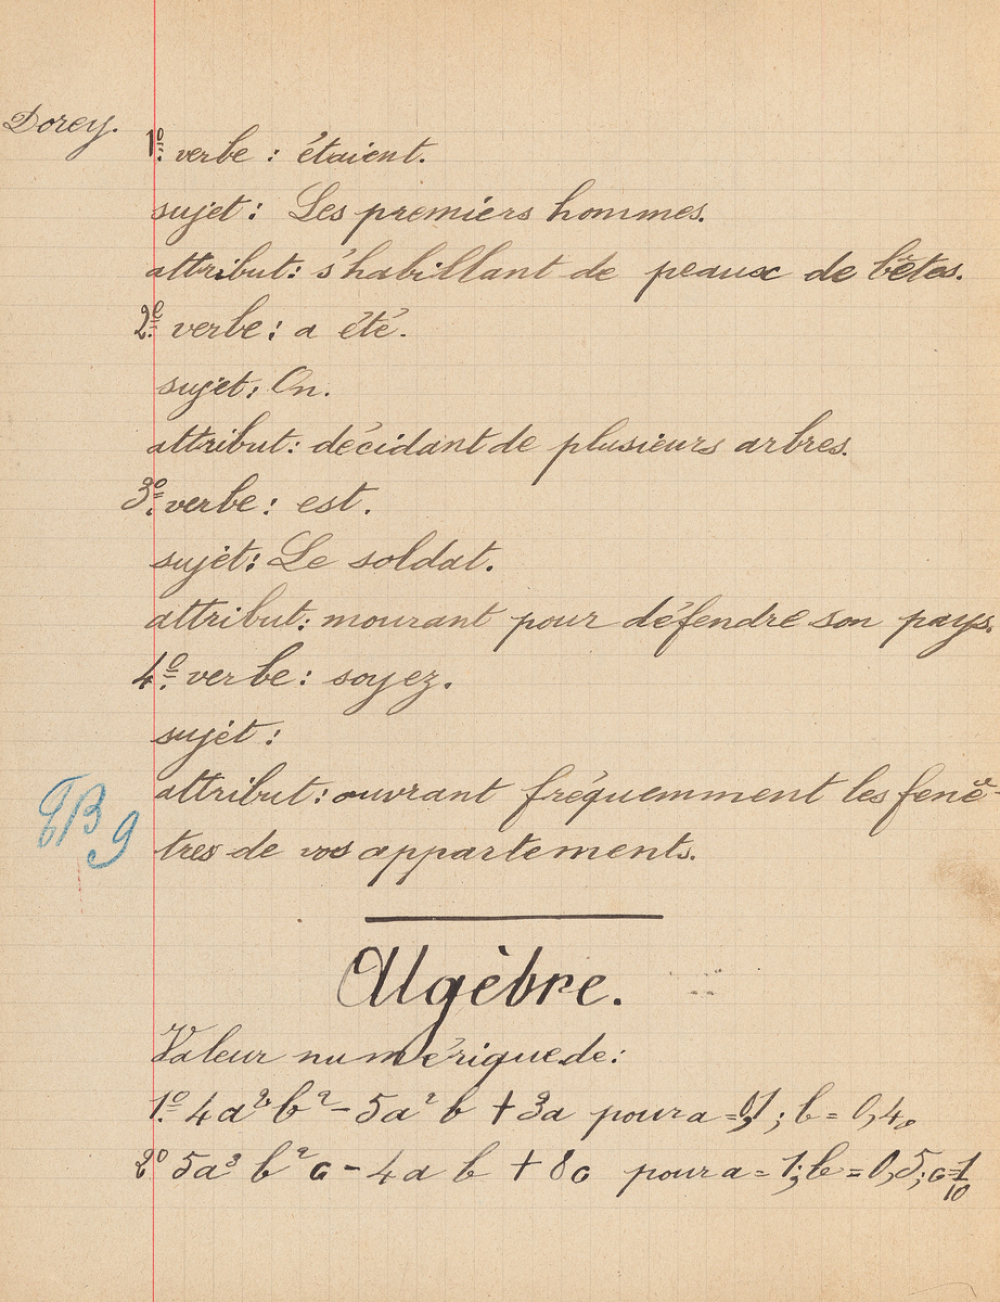 Dorey.
1º verbe : étaient.
sujet : Les premiers hommes.
attribut : s'habillant de peaux de bêtes.
2º verbe : a été.
sujet : On.
attribut : décidant de plusieurs arbres.
3º verbe : est.
sujet : Le soldat.
attribut : mourant pour défendre son pays.
4º verbe : soyez.
sujet :
attribut : ouvrant fréquemment les fenê-
tres de vos appartements.
TB 9
Algèbre.
Valeur numérique de :
1º 4a²b² - 5a²b + 3a pour a = 0,1 ; b = 0,4.
2º 5a³b²c - 4ab + 8c pour a = 1 ; b = 0,5 ; c = 1/10